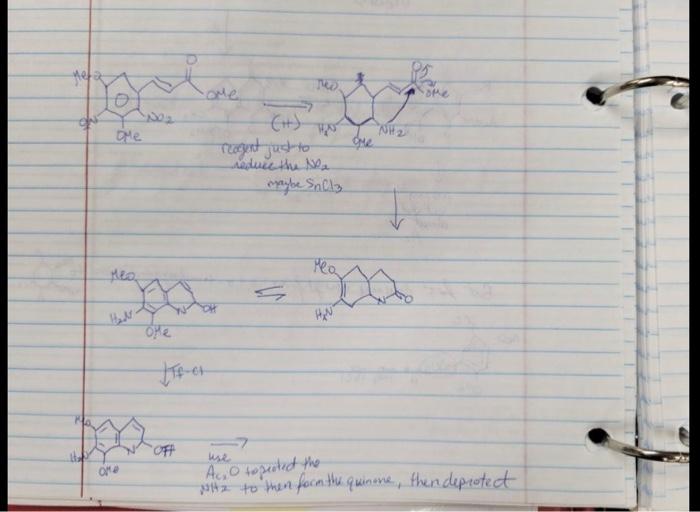 MeO O OMe
O₂N NO₂
OMe
(H)
reagent just to
reduce the NO₂
maybe SnCl₃
MeO O OMe
H₂N NH₂
OMe
MeO
H₂N N O
MeO
H₂N N OH
OMe
Tf-Cl
MeO
H₂N N OTf
OMe
use
Ac₂O to protect the
NH₂ to then form the quinone, then deprotect